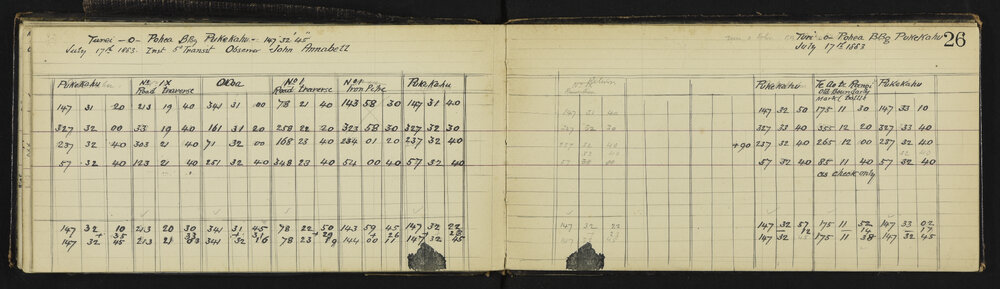 Turei -o- Pohea Bdg Pukekahu - 147° 32' 45"
July 17th 1883 Inst 5" Transit Observer John Annabell
Pukekahu No 1X Road traverse No 1 Road traverse No 1 Iron Pipe Pukekahu
147 31 20 213 19 40 341 31 00 78 21 40 143 58 30 147 31 40
327 32 00 33 19 40 161 31 20 258 22 20 323 58 30 327 32 30
237 32 40 303 21 40 71 32 00 168 23 40 234 01 20 237 32 40
57 32 40 123 21 40 251 32 40 348 23 40 54 00 40 57 32 40
147 32 10 213 20 30 341 31 45 78 22 50 143 59 45 147 32 22
+ 35 + 33 + 31 + 29 + 26 + 23
147 32 45 213 21 03 341 32 16 78 23 19 144 00 11 147 32 45
Turei -o- Pohea Bdg Pukekahu 26
July 17th 1883
Pukekahu Te Ao te Rangi Old Boundary Mark Pukekahu
147 32 50 175 11 30 147 33 10
327 33 40 355 12 20 327 33 40
+90 237 32 40 265 12 00 237 32 40
57 32 40 85 11 40 57 32 40
as check only
147 32 57 175 11 52 147 33 02
12 14 17
147 32 45 175 11 38 147 32 45